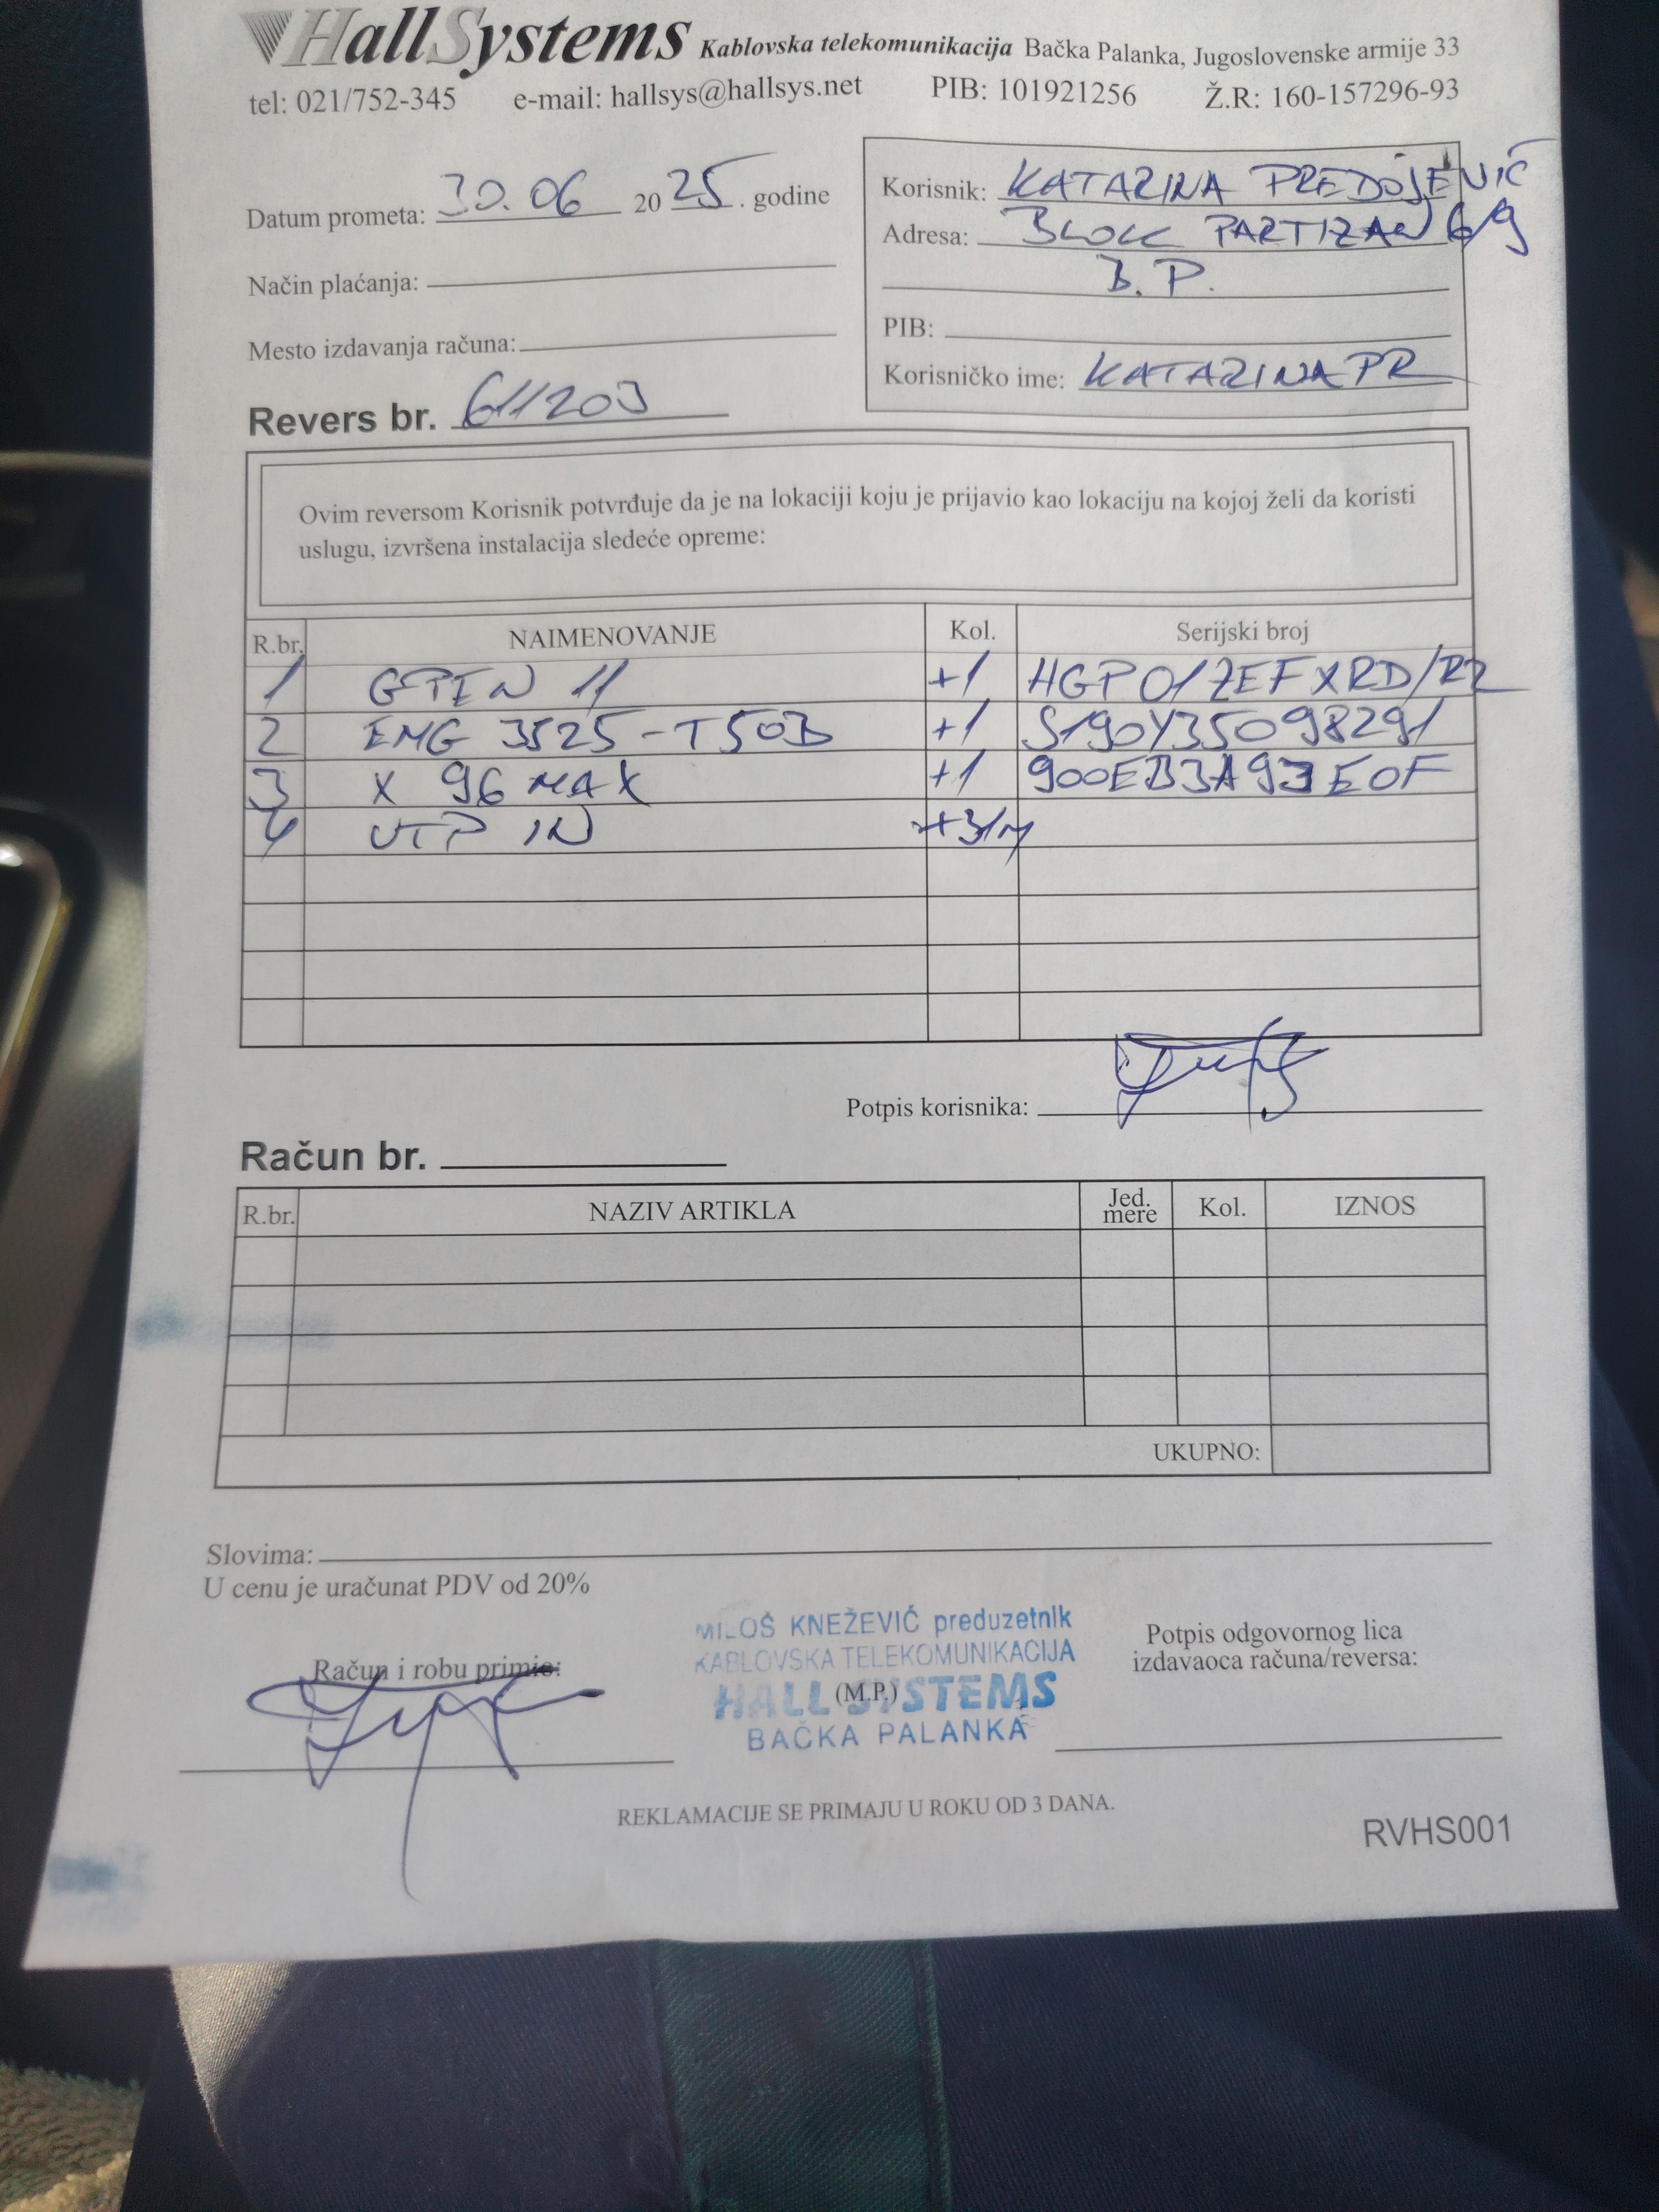 HallSystems Kablovska telekomunikacija Bačka Palanka, Jugoslovenske armije 33
tel: 021/752-345 e-mail: hallsys@hallsys.net PIB: 101921256 Ž.R: 160-157296-93
Datum prometa: 30.06 2025. godine
Način plaćanja:
Mesto izdavanja računa:
Revers br. 611203
Korisnik: KATARINA PREDOJEVIĆ
Adresa: BLOK PARTIZAN 6/9
B.P.
PIB:
Korisničko ime: KATARINAPR
Ovim reversom Korisnik potvrđuje da je na lokaciji koju je prijavio kao lokaciju na kojoj želi da koristi
uslugu, izvršena instalacija sledeće opreme:
R.br. NAIMENOVANJE Kol. Serijski broj
1 11 +1
2 EMG 3525-T50B +1 S190Y35098291
3 X 96 MAX +1 900EB3A93E0F
4 UTP IN
Potpis korisnika:
Račun br.
R.br. NAZIV ARTIKLA Jed. mere Kol. IZNOS
UKUPNO:
Slovima:
U cenu je uračunat PDV od 20%
Račun i robu primio:
MILOŠ KNEŽEVIĆ preduzetnik
KABLOVSKA TELEKOMUNIKACIJA
HALL SYSTEMS
(M.P.)
BAČKA PALANKA
Potpis odgovornog lica
izdavaoca računa/reversa:
REKLAMACIJE SE PRIMAJU U ROKU OD 3 DANA.
RVHS001